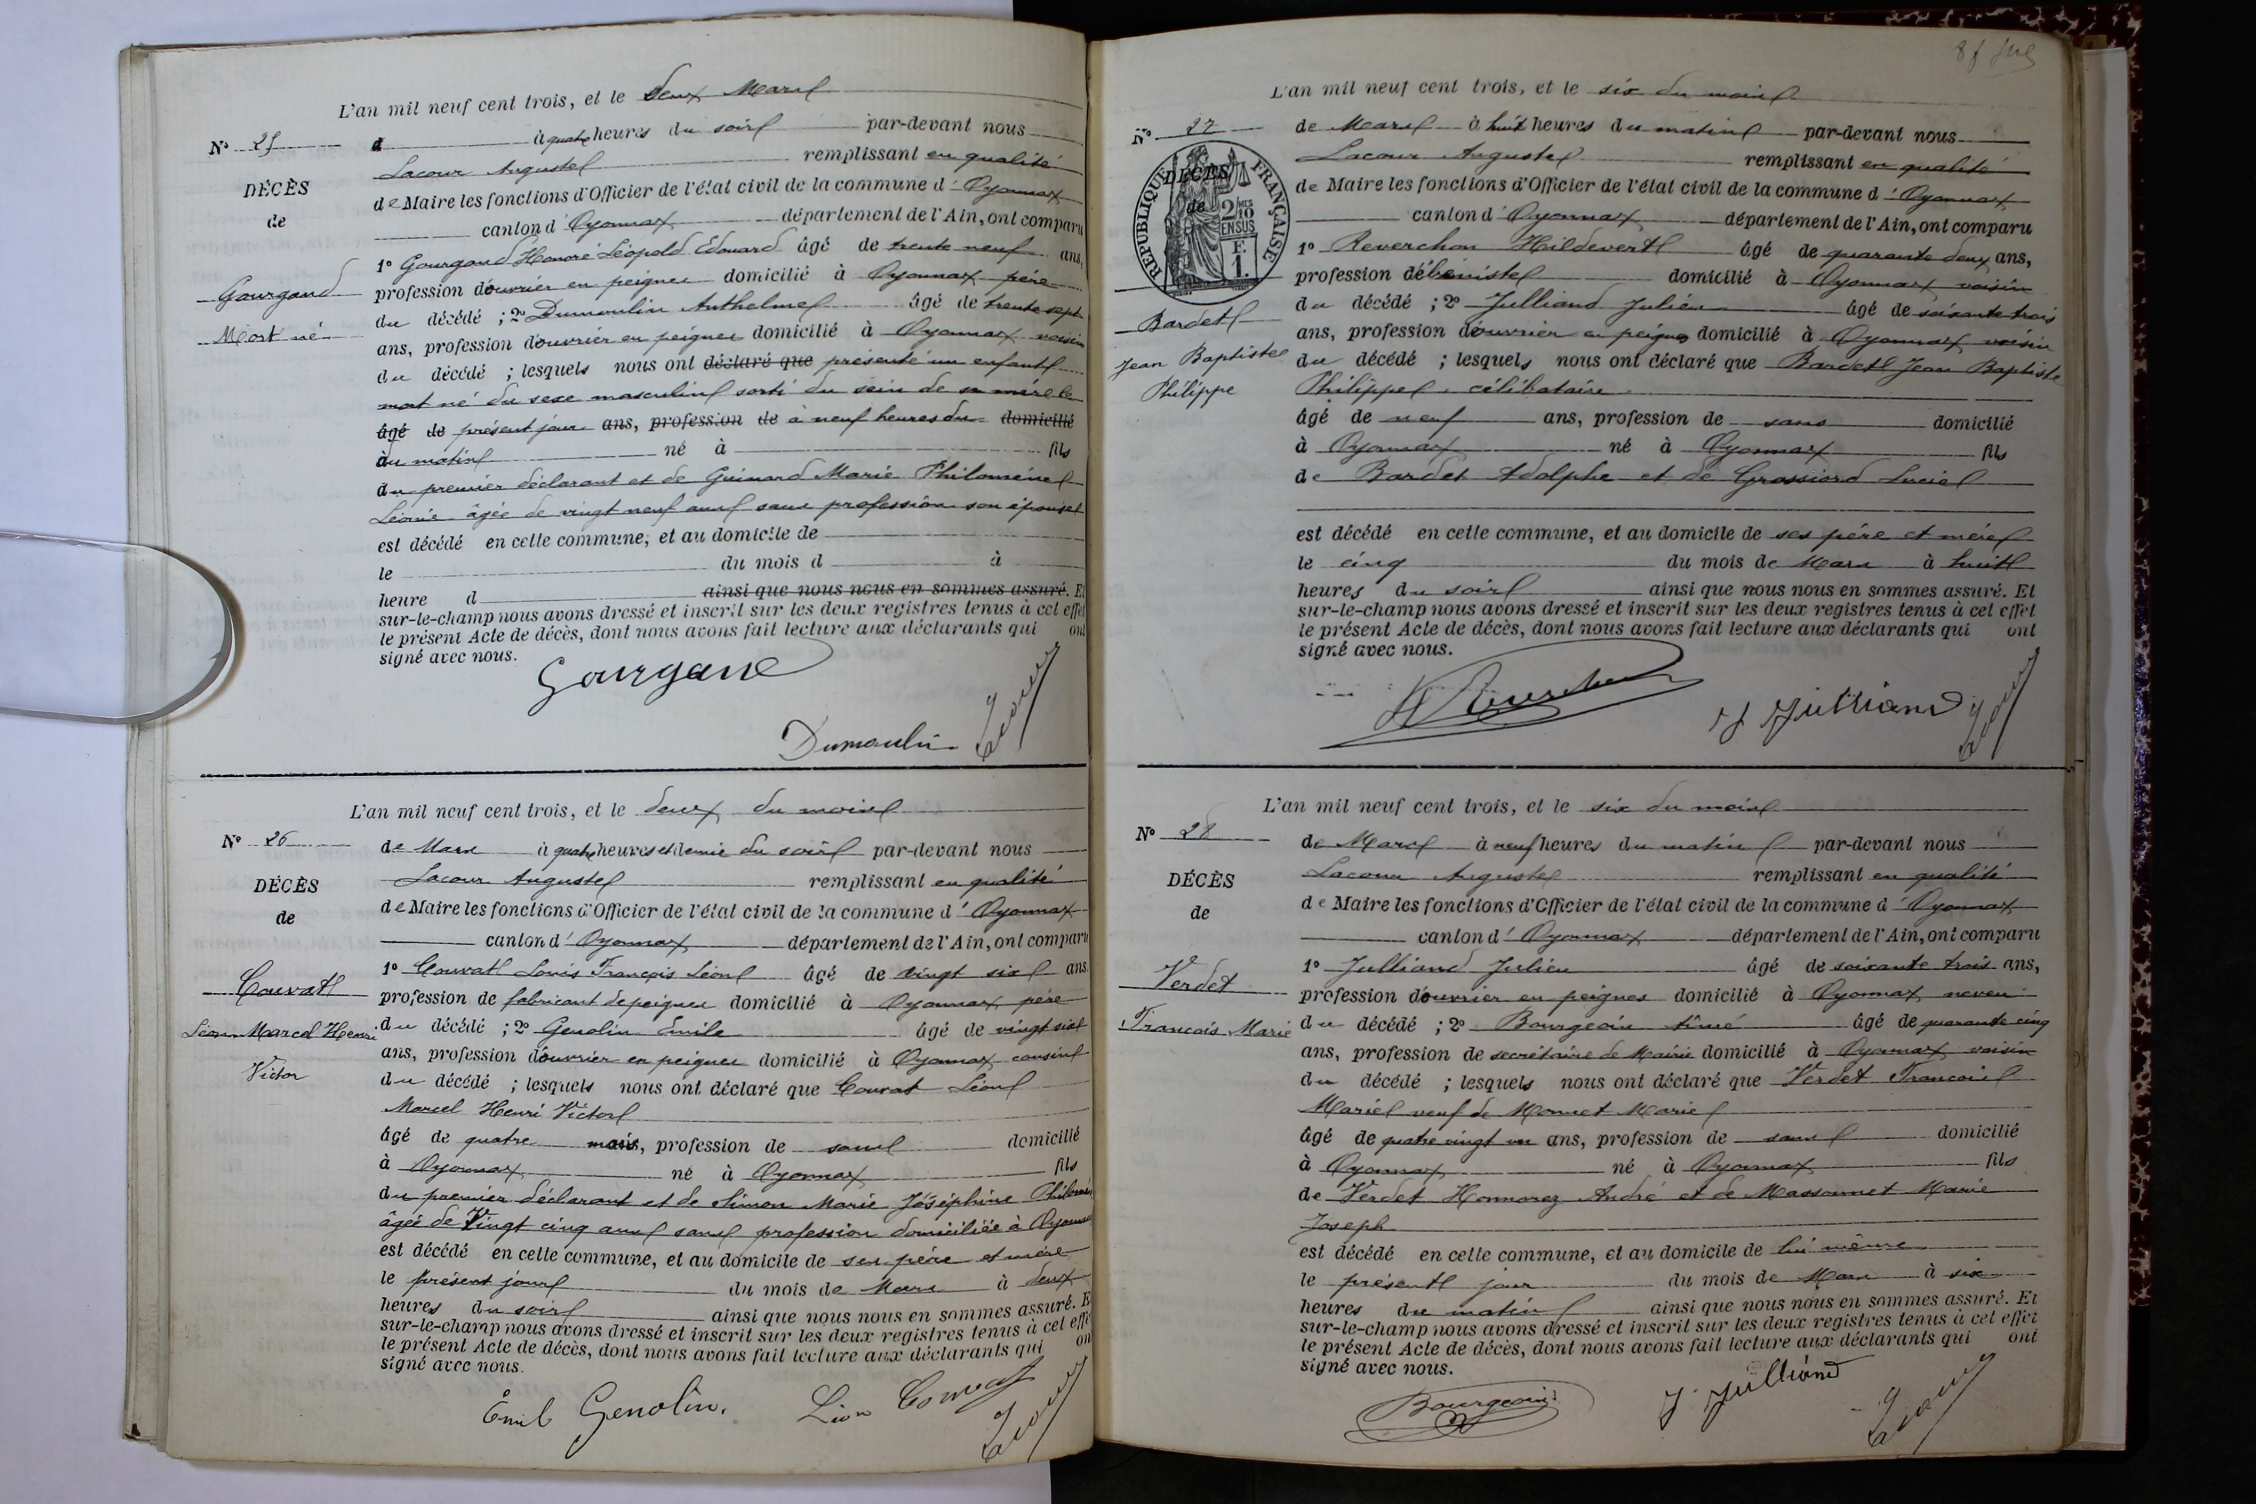 L'an mil neuf cent trois, et le deux Mars
N° 25
d à quatre heures du soir par-devant nous
DÉCÈS
Lacour Auguste remplissant en qualité
de
de Maire les fonctions d'Officier de l'état civil de la commune d'Oyonnax
canton d'Oyonnax département de l'Ain, ont comparu
1° Gourgand Honoré Léopold Edouard âgé de trente neuf ans,
Gourgand
profession d'ouvrier en peignes domicilié à Oyonnax père
Mort né
du décédé ; 2° Dumoulin Anthelme âgé de trente sept
ans, profession d'ouvrier en peignes domicilié à Oyonnax voisin
du décédé ; lesquels nous ont déclaré que présenté un enfant
mort né du sexe masculin sorti du sein de sa mère le
âgé de présent jour ans, profession de à neuf heures du domicilié
à du matin né à fils
du premier déclarant et de Guinard Marie Philomène
Léonie âgée de vingt neuf ans sans profession son épouse
est décédé en cette commune, et au domicile de
le du mois d à
heure d ainsi que nous nous en sommes assuré. Et
sur-le-champ nous avons dressé et inscrit sur les deux registres tenus à cet effet
le présent Acte de décès, dont nous avons fait lecture aux déclarants qui ont
signé avec nous.
Gourgand
Dumoulin Lacour
L'an mil neuf cent trois, et le deux du mois
N° 26
de Mars à quatre heures et demie du soir par-devant nous
DÉCÈS
Lacour Auguste remplissant en qualité
de
de Maire les fonctions d'Officier de l'état civil de la commune d'Oyonnax
canton d'Oyonnax département de l'Ain, ont comparu
1° Convat Louis François Léon âgé de vingt six ans
Convat
profession de fabricant de peignes domicilié à Oyonnax père
Léon Marcel Henri
du décédé ; 2° Genolin Emile âgé de vingt sixt
ans, profession d'ouvrier en peignes domicilié à Oyonnax cousin
Victor
du décédé ; lesquels nous ont déclaré que Convat Léon
Marcel Henri Victor
âgé de quatre mois, profession de sans domicilié
à Oyonnax né à Oyonnax fils
du premier déclarant et de Simon Marie Joséphine
âgée de Vingt cinq ans sans profession domiciliée à Oyonnax
est décédé en cette commune, et au domicile de ses père et mère
le présent jour du mois de Mars à deux
heures du soir ainsi que nous nous en sommes assuré. Et
sur-le-champ nous avons dressé et inscrit sur les deux registres tenus à cet effet
le présent Acte de décès, dont nous avons fait lecture aux déclarants qui ont
signé avec nous.
Emile Genolin. Léon Convat Lacour
L'an mil neuf cent trois, et le six du mois
N° 27
de Mars à huit heures du matin par-devant nous
Lacour Auguste remplissant en qualité
RÉPUBLIQUE FRANÇAISE
DÉCÈS
de
2/10 MES EN SUS
F. 1.
de Maire les fonctions d'Officier de l'état civil de la commune d'Oyonnax
canton d'Oyonnax département de l'Ain, ont comparu
1° Reverchon Hildevert âgé de quarante deux ans,
profession d'ébéniste domicilié à Oyonnax voisin
Bardet
du décédé ; 2° Julliand Julien âgé de soixante trois
ans, profession d'ouvrier en peignes domicilié à Oyonnax voisin
Jean Baptiste
du décédé ; lesquels nous ont déclaré que Bardet Jean Baptiste
Philippe
Philippe, célibataire
âgé de neuf ans, profession de sans domicilié
à Oyonnax né à Oyonnax fils
de Bardet Adolphe et de Grossiord Lucie
est décédé en cette commune, et au domicile de ses père et mère
le cinq du mois de Mars à huit
heures du soir ainsi que nous nous en sommes assuré. Et
sur-le-champ nous avons dressé et inscrit sur les deux registres tenus à cet effet
le présent Acte de décès, dont nous avons fait lecture aux déclarants qui ont
signé avec nous.
H Reverchon J Julliand Lacour
L'an mil neuf cent trois, et le six du mois
N° 28
de Mars à neuf heures du matin par-devant nous
DÉCÈS
Lacour Auguste remplissant en qualité
de
de Maire les fonctions d'Officier de l'état civil de la commune d'Oyonnax
canton d'Oyonnax département de l'Ain, ont comparu
1° Julliand Julien âgé de soixante trois ans,
Verdet
profession d'ouvrier en peignes domicilié à Oyonnax neveu
François Marie
du décédé ; 2° Bourgeois Aimé âgé de quarante cinq
ans, profession de secrétaire de Mairie domicilié à Oyonnax voisin
du décédé ; lesquels nous ont déclaré que Verdet François
Marie veuf de Monnet Marie
âgé de quatre vingt un ans, profession de sans domicilié
à Oyonnax né à Oyonnax fils
de Verdet Honnorez André et de Massonnet Marie
Joseph
est décédé en cette commune, et au domicile de lui même
le présent jour du mois de Mars à six
heures du matin ainsi que nous nous en sommes assuré. Et
sur-le-champ nous avons dressé et inscrit sur les deux registres tenus à cet effet
le présent Acte de décès, dont nous avons fait lecture aux déclarants qui ont
signé avec nous.
Bourgeois J. Julliand Lacour